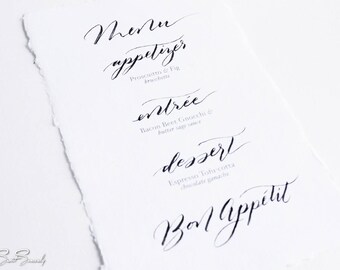 Menu
appetizer
Prosciutto & Fig
bruschetta
entrée
Bacon Beet Gnocchi &
butter sage sauce
dessert
Espresso
chocolate ganache
Bon Appétit